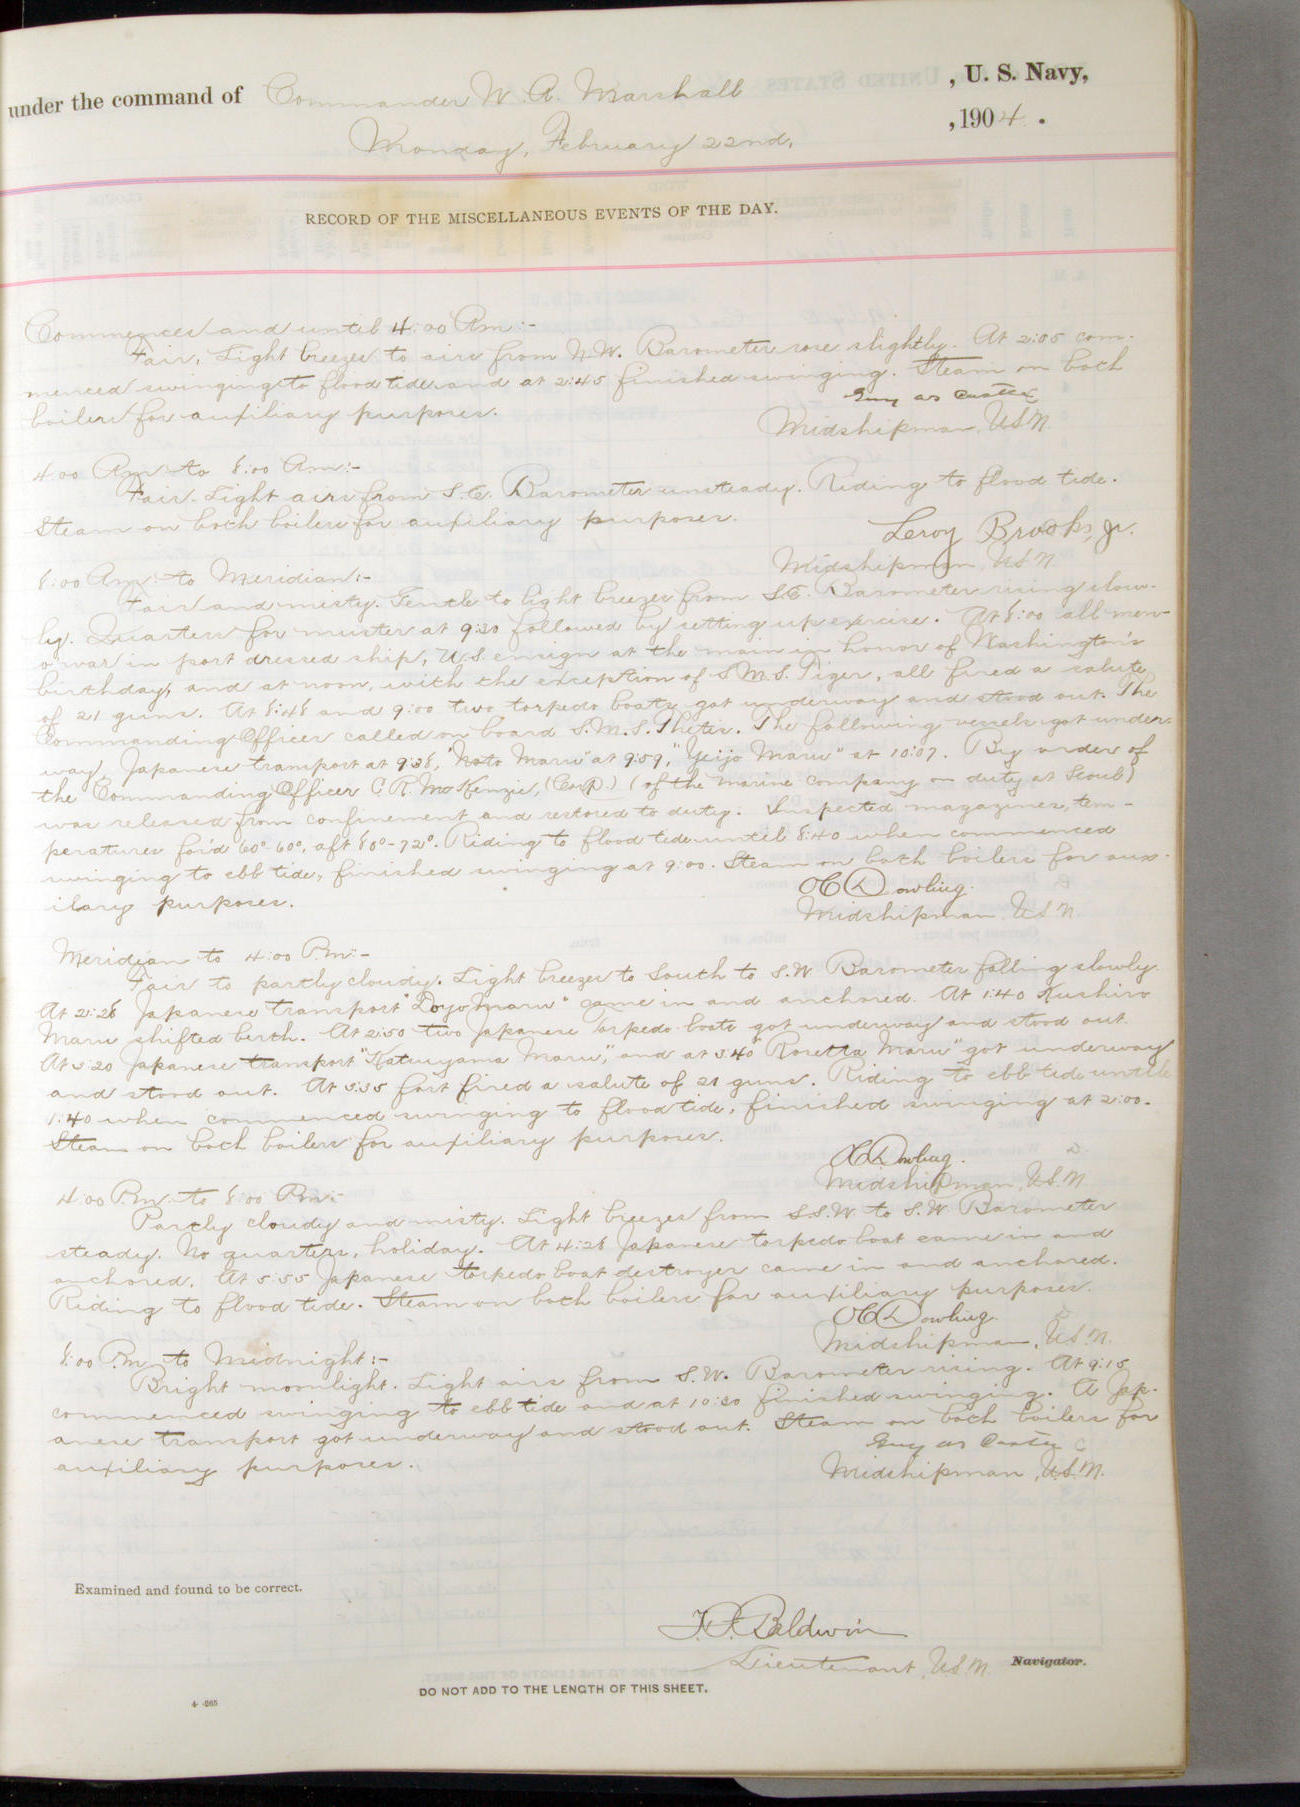 under the command of Commander W. A. Marshall , U. S. Navy,
Monday, February 22nd, , 1904 .
RECORD OF THE MISCELLANEOUS EVENTS OF THE DAY.
Commences and until 4:00 Am:-
Fair, Light breezes to airs from N.W. Barometer rose slightly. At 2:05 com-
menced swinging to flood tide and at 2:45 finished swinging. Steam on both
boilers for auxiliary purposes.
Midshipman, U.S.N.
4:00 Am: to 8:00 Am:-
Fair. Light airs from S.E. Barometer unsteady. Riding to flood tide.
Steam on both boilers for auxiliary purposes.
Leroy Brooks, Jr.
Midshipman, U.S.N.
8:00 Am: to Meridian:-
Fair and misty. Gentle to light breezes from S.E. Barometer rising slow-
ly. Quarters for muster at 9:30 followed by setting up exercise. At 8:00 all men-
o' war in port dressed ship, U.S. ensign at the main in honor of Washington's
birthday, and at noon, with the exception of S.M.S. Tiger, all fired a salute
of 21 guns. At 8:48 and 9:00 two torpedo boats got underway and stood out. The
Commanding Officer called on board S.M.S. Thetis. The following vessels got under-
way, Japanese transport at 9:38, "Noto Maru" at 9:59, "Yeijo Maru" at 10:07. By order of
the Commanding Officer C.R. McKenzie, (Corp.) (of the marine company on duty at Seoul)
was released from confinement and restored to duty. Inspected magazines, tem-
peratures for'd 60°-60°, aft 80°-72°. Riding to flood tide until 8:40 when commenced
swinging to ebb tide, finished swinging at 9:00. Steam on both boilers for aux-
iliary purposes.
Dowling.
Midshipman, U.S.N.
Meridian to 4:00 P.m:-
Fair to partly cloudy. Light breezes to South to S.W. Barometer falling slowly.
At 2:28 Japanese transport "Doyo Maru" came in and anchored. At 1:40 Kushiro
Maru shifted berth. At 2:50 two Japanese Torpedo boats got underway and stood out.
At 3:20 Japanese transport "Katsuyama Maru", and at 3:40 "Rosetta Maru" got underway
and stood out. At 3:35 fort fired a salute of 21 guns. Riding to ebb tide until
1:40 when commenced swinging to flood tide, finished swinging at 2:00.
Steam on both boilers for auxiliary purposes.
Dowling.
Midshipman, U.S.N.
4:00 P.m. to 8:00 P.m:-
Partly cloudy and misty. Light breezes from S.S.W. to S.W. Barometer
steady. No quarters, holiday. At 4:28 Japanese torpedo boat came in and
anchored. At 5:55 Japanese torpedo boat destroyer came in and anchored.
Riding to flood tide. Steam on both boilers for auxiliary purposes.
Dowling.
Midshipman, U.S.N.
8:00 P.m to Midnight:-
Bright moonlight. Light airs from S.W. Barometer rising. At 9:15
commenced swinging to ebb tide and at 10:30 finished swinging. A Jap-
anese transport got underway and stood out. Steam on both boilers for
auxiliary purposes.
Midshipman, U.S.N.
Examined and found to be correct.
Baldwin
Lieutenant, U.S.N. Navigator.
DO NOT ADD TO THE LENGTH OF THIS SHEET.